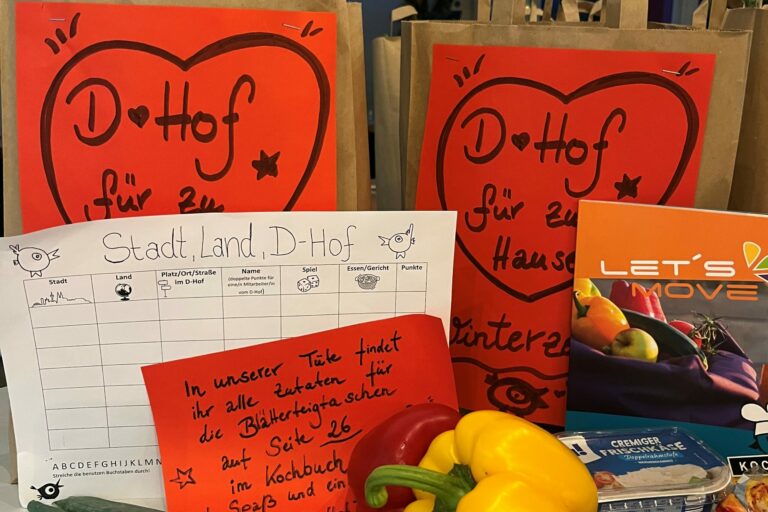 D♥Hof
für zu
D♥Hof
für zu
Hause
Stadt, Land, D-Hof
Stadt
Land
Platz/Ort/Straße
im D-Hof
Name
(doppelte Punkte für
eine/n Mitarbeiter/in
vom D-Hof)
Spiel
Essen/Gericht
Punkte
ABCDEFGHIJKLMN
Streiche die benutzen Buchstaben durch!
In unserer Tüte findet
ihr alle Zutaten für
die Blätterteigtaschen
auf Seite 26
im Kochbuch
Spaß und ein
LET'S
MOVE
KOC
CREMIGER
FRISCHKÄSE
Doppelrahmstufe